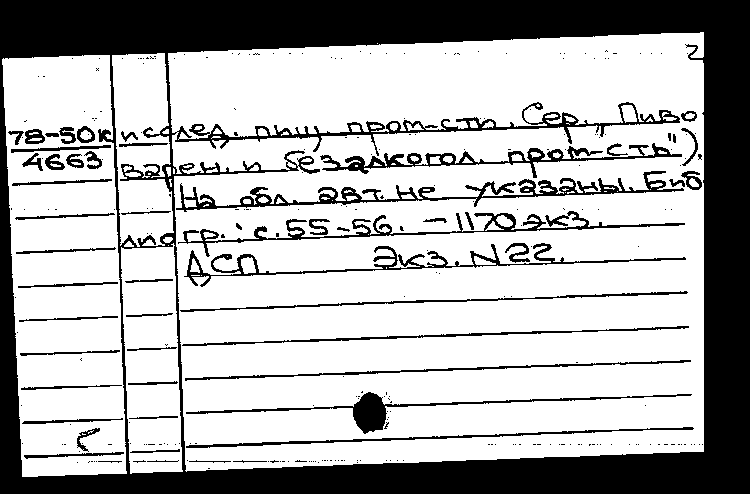 2
78-50к исслед. пищ. пром-сти. Сер. „Пиво-
4663 варен. и безалкогол. пром-сть").
На обл. авт. не указаны. Биб
лиогр.: с. 55-56. – 1170 экз.
ДСП. Экз. N22.